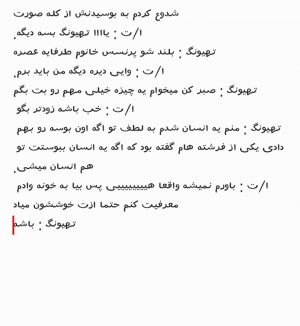 شدوع کردم به بوسیدنش از کله صورت
ا/ت : یاااا تهیونگ بسه دیگه.
تهیونگ : بلند شو پرنسس خانوم طرفایه عصره
ا/ت : وایی دیره دیگه من باید برم.
تهیونگ : صبر کن میخوام یه چیزه خیلی مهم رو بت بگم
ا/ت : خب باشه زودتر بگو
تهیونگ : منم یه انسان شدم به لطف تو اگه اون بوسه رو بهم
دادی یکی از فرشته هام گفته بود که اگه یه انسان ببوستت تو
هم انسان میشی.
ا/ت : باورم نمیشه واقعا هیییییییی پس بیا به خونه وادم
معرفیت کنم حتما ازت خوششون میاد
تهیونگ : باشه